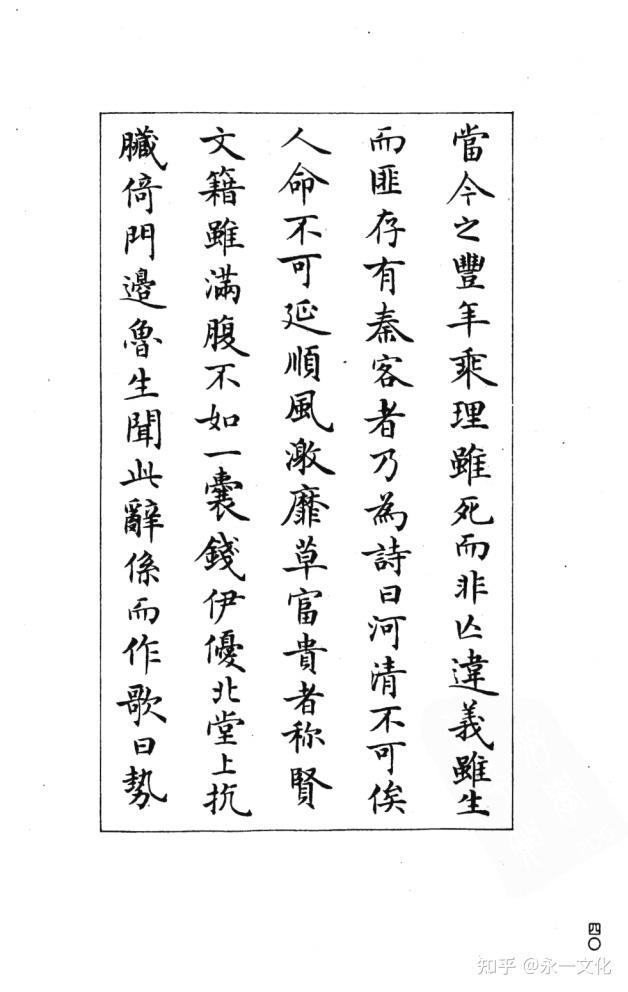 當今之豐年乘理雖死而非亾違義雖生
而匪存有秦客者乃為詩曰河清不可俟
人命不可延順風激靡草富貴者称賢
文籍雖滿腹不如一囊錢伊優北堂上抗
臓倚門邊魯生聞此辭係而作歌曰勢
四〇
知乎 @永一文化